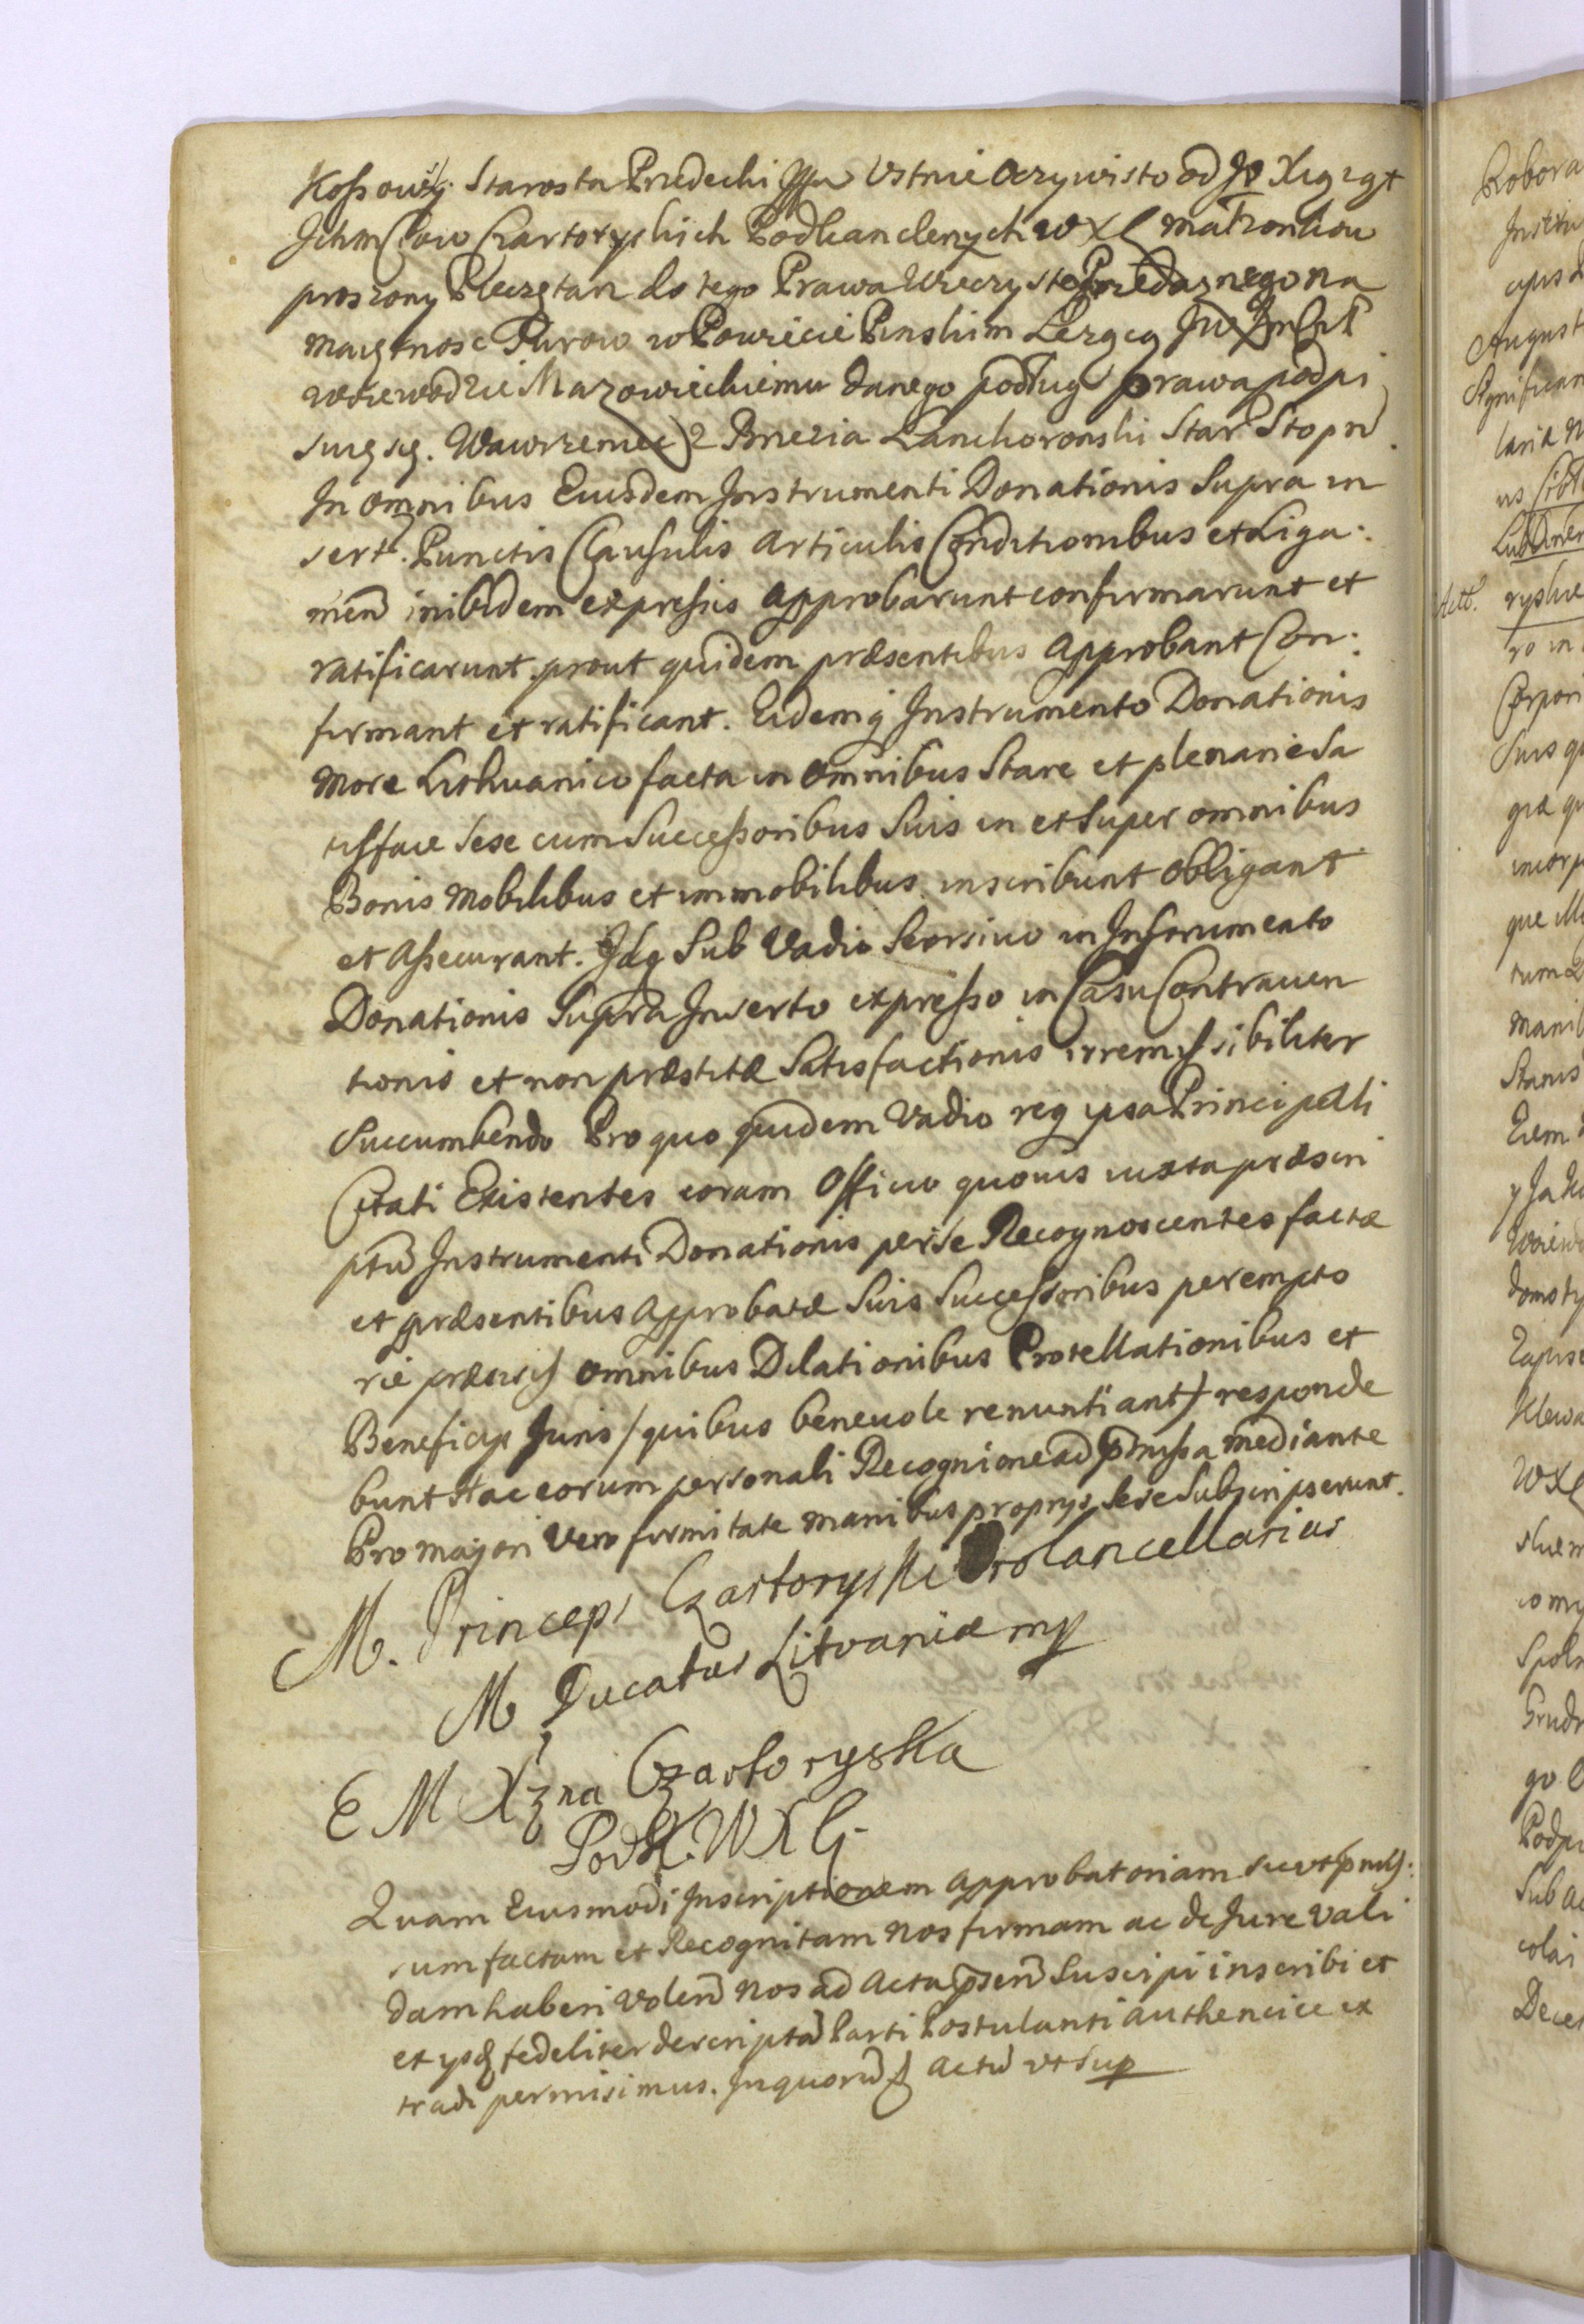 Kossowsky Starosta Przedecki Ustnie Oczywisto od JO Xiążąt
Ichmciow Czartoryskich Podkanclerzych WXL matzonkow
proszony Pieczętarz do tego Prawa Wieczysto Przedaznego na
maiętnosc Parow w Powiecie Pinskim Lezącą
woiewodzie Mazowieckiemu danego podług prawa podpi
suię się. Wawrzeniec z Brzezia Lanckoronski Star Stopn
In omnibus Eiusdem Instrumenti Donationis Supra in
sert. Punctis Clausulis Articulis Conditionibus et Liga:
men inibidem expressis approbarunt confirmarunt et
ratificarunt prout quidem præsentibus approbant Con:
firmant et ratificant. Eidemq Instrumento Donationis
more Lithuanico facta in omnibus Stare et plenarie Sa
tisface Sese cum Successoribus Suis in et Super omnibus
Bonis mobilibus et immobilibus inscribunt obligant
et assecurant. Idq Sub Vadio Seorsivo in Instrumento
Donationis Supra Inserto expresso in Casu Contraven
tionis et non præstitæ Satisfactionis irremissibiliter
Succumbendo Pro quo quidem Vadio req ipsa Principali
Citati Existentes coram Officio quovis iuxta præscri
ptu Instrumenti Donationis per Se Recognoscentes factæ
et præsentibus approbatæ Suis Successoribus perempto
rie præcisis omnibus Dilationibus Protellationibus et
Beneficys Juris /quibus benevole renuntiant/ responde
bunt Hac eorum personali Recognitione ad præmissa mediante
Pro majori vero firmitate manibus proprys Sese Subscripserunt.
M. Princeps Czartoryski Procancellarius
M. Ducatus Litvaniæ mp
E M Xzna Czartoryska
Podk. W X L
Quam Eiusmodi Inscriptionem approbatoriam sicut præmis:
sum factam et Recognitam nos firmam ac de Jure vali
dam haberi volen nos ad Acta præsen Suscipi inscribi et
et ysq fideliter descripta Parti Postulanti authentice ex
tradi permisimus. In quoru Actu ut Sup